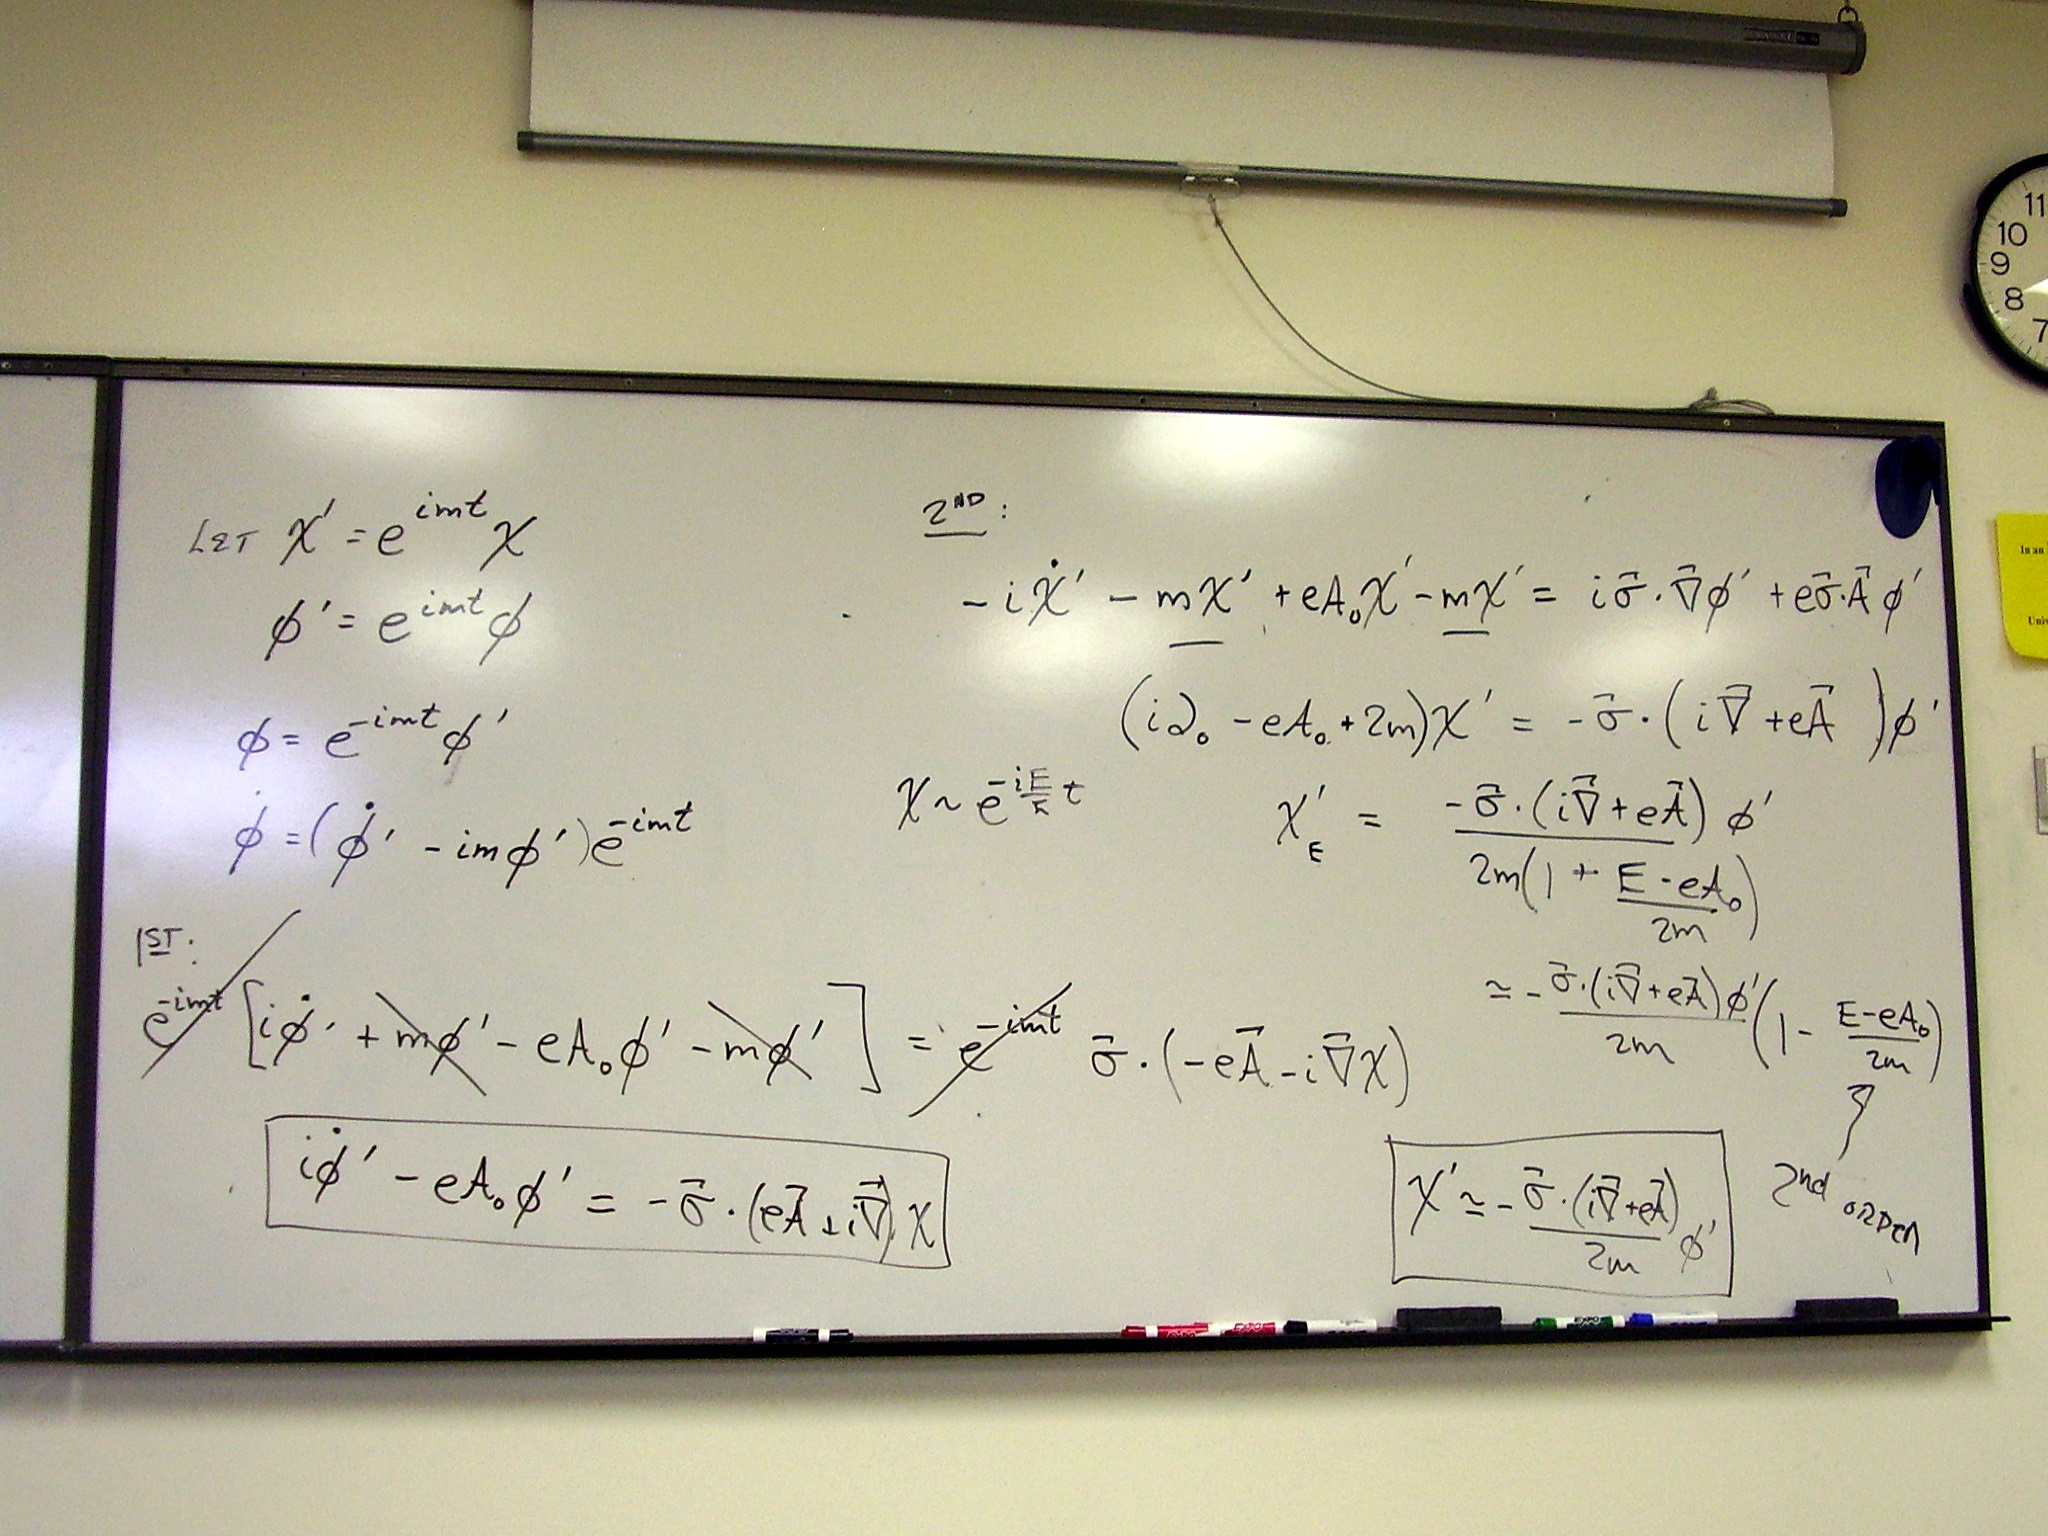 LET χ' = e^{imt} χ
ϕ' = e^{imt} ϕ
ϕ = e^{-imt} ϕ'
ϕ̇ = (ϕ̇' - imϕ') e^{-imt}
1ST:
e^{-imt} [iϕ̇' + mϕ' - eA₀ϕ' - mϕ'] = e^{-imt} σ⃗·(-eA⃗ - i∇⃗χ)
iϕ̇' - eA₀ϕ' = -σ⃗·(eA⃗ + i∇⃗)χ
2ND:
-iχ̇' - mχ' + eA₀χ' - mχ' = iσ⃗·∇⃗ϕ' + eσ⃗·A⃗ϕ'
(i∂₀ - eA₀ + 2m)χ' = -σ⃗·(i∇⃗ + eA⃗)ϕ'
χ ~ e^{-i\frac{E}{ħ}t}
χ'_E = \frac{-σ⃗·(i∇⃗ + eA⃗)}{2m(1 + \frac{E - eA₀}{2m})} ϕ'
≃ -\frac{σ⃗·(i∇⃗ + eA⃗)ϕ'}{2m} (1 - \frac{E - eA₀}{2m})
2nd ORDER
χ' ≃ -\frac{σ⃗·(i∇⃗ + eA⃗)}{2m} ϕ'
11
10
9
8
7
In an
Univ